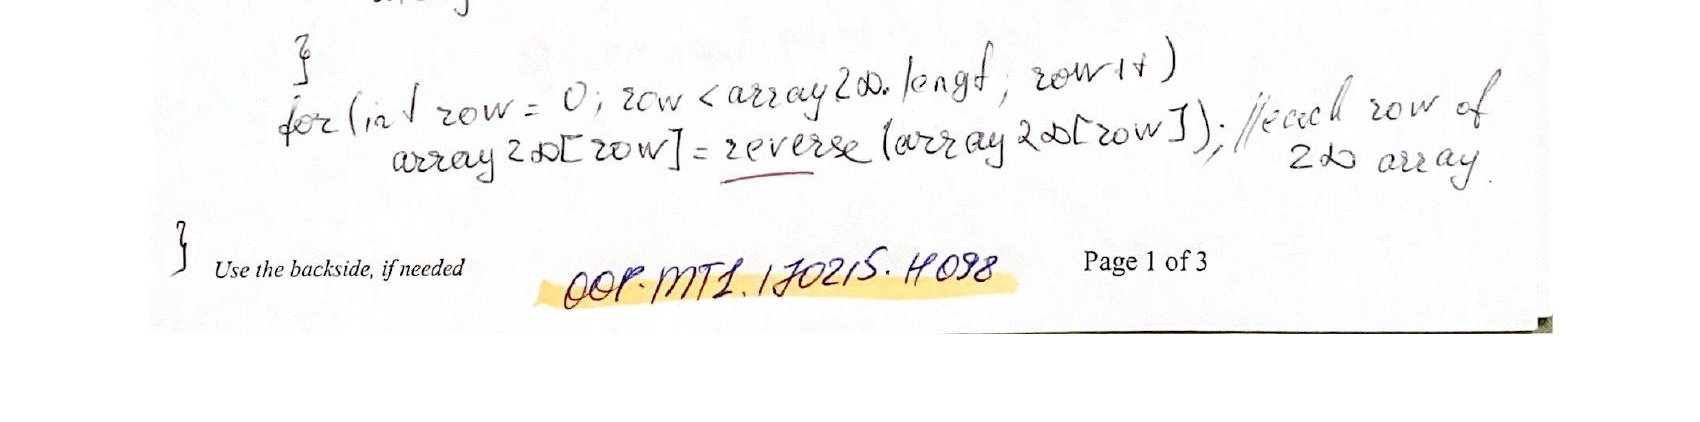 }
for (int row = 0; row < array2D.lengt; row++)
array2D[row] = reverse (array2D[row]); //each row of
2D array.
}
Use the backside, if needed
OOP.MT1.170215.H098
Page 1 of 3